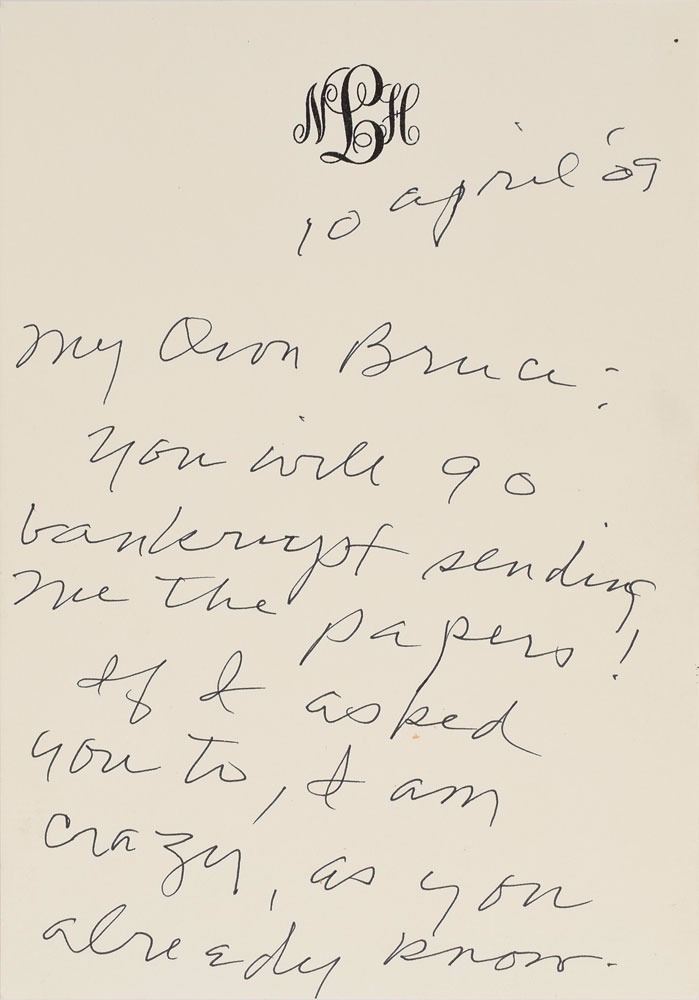 NLH
10 april '09
My Own Bruce:
You will go
bankrupt sending
me the papers!
If I asked
you to, I am
crazy, as you
already know.